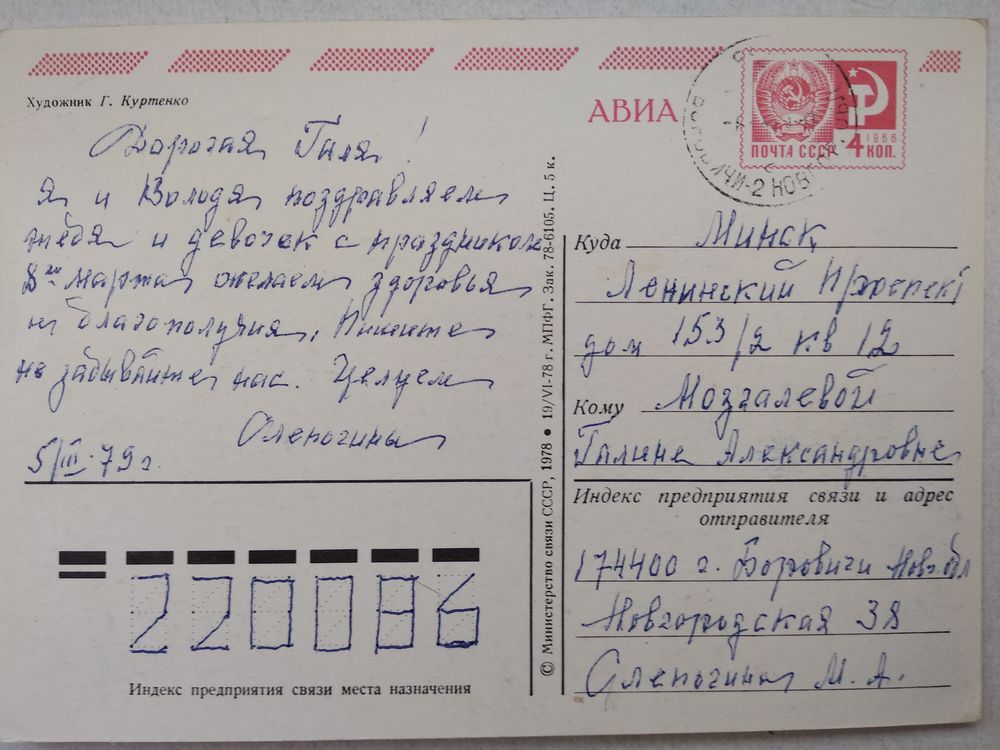 Художник Г. Куртенко
АВИА
ПОЧТА СССР
1966
4 КОП.
Дорогая Галя!
Я и Володя поздравляем
тебя и девочек с праздником
8го марта желаем здоровья
и благополучия. Пишите
не забывайте нас. Целуем
Оленогины
5/III-79 г.
220086
Индекс предприятия связи места назначения
© Министерство связи СССР, 1978 ● 19/VI-78 г. МПФГ. Зак. 78-6105. Ц. 5 к.
Куда Минск
Ленинский Проспект
дом 153/2 кв 12
Кому Мозгалевой
Галине Александровне
Индекс предприятия связи и адрес
отправителя
174400 г. Боровичи Новг.обл
Новгородская 38
Оленогины М. А.